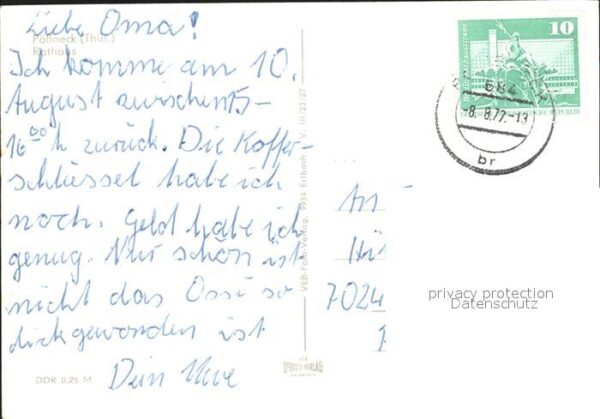 Liebe Oma!
Pößneck (Thür.)
Rathaus
Ich komme am 10.
August zwischen 15-
16⁰⁰h zurück. Die Koffer-
schlüssel habe ich
noch. Geld habe ich
genug. Nur schön ist
nicht das Ossi so
dickgeworden ist
Dein Uwe
DDR 0,25 M
VEB Foto-Verlag, 9934 Erlbach V. III/23/27
FOTO-VERLAG
ERLBACH
10
DEUTSCHE DEMOKRATISCHE REPUBLIK
684
-8.8.77.-13
br
An
7024
privacy protection
Datenschutz